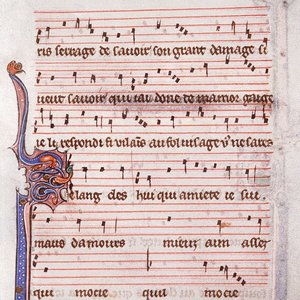 ris seruage de sauoir son grant damage si
ueut sauoir qui iai done mamor gaige
ie li respondi si vilains au fol uisage
elang des hui qui amiete ie sui
maus damours mieuz aim asser
qui mocie quil mocie